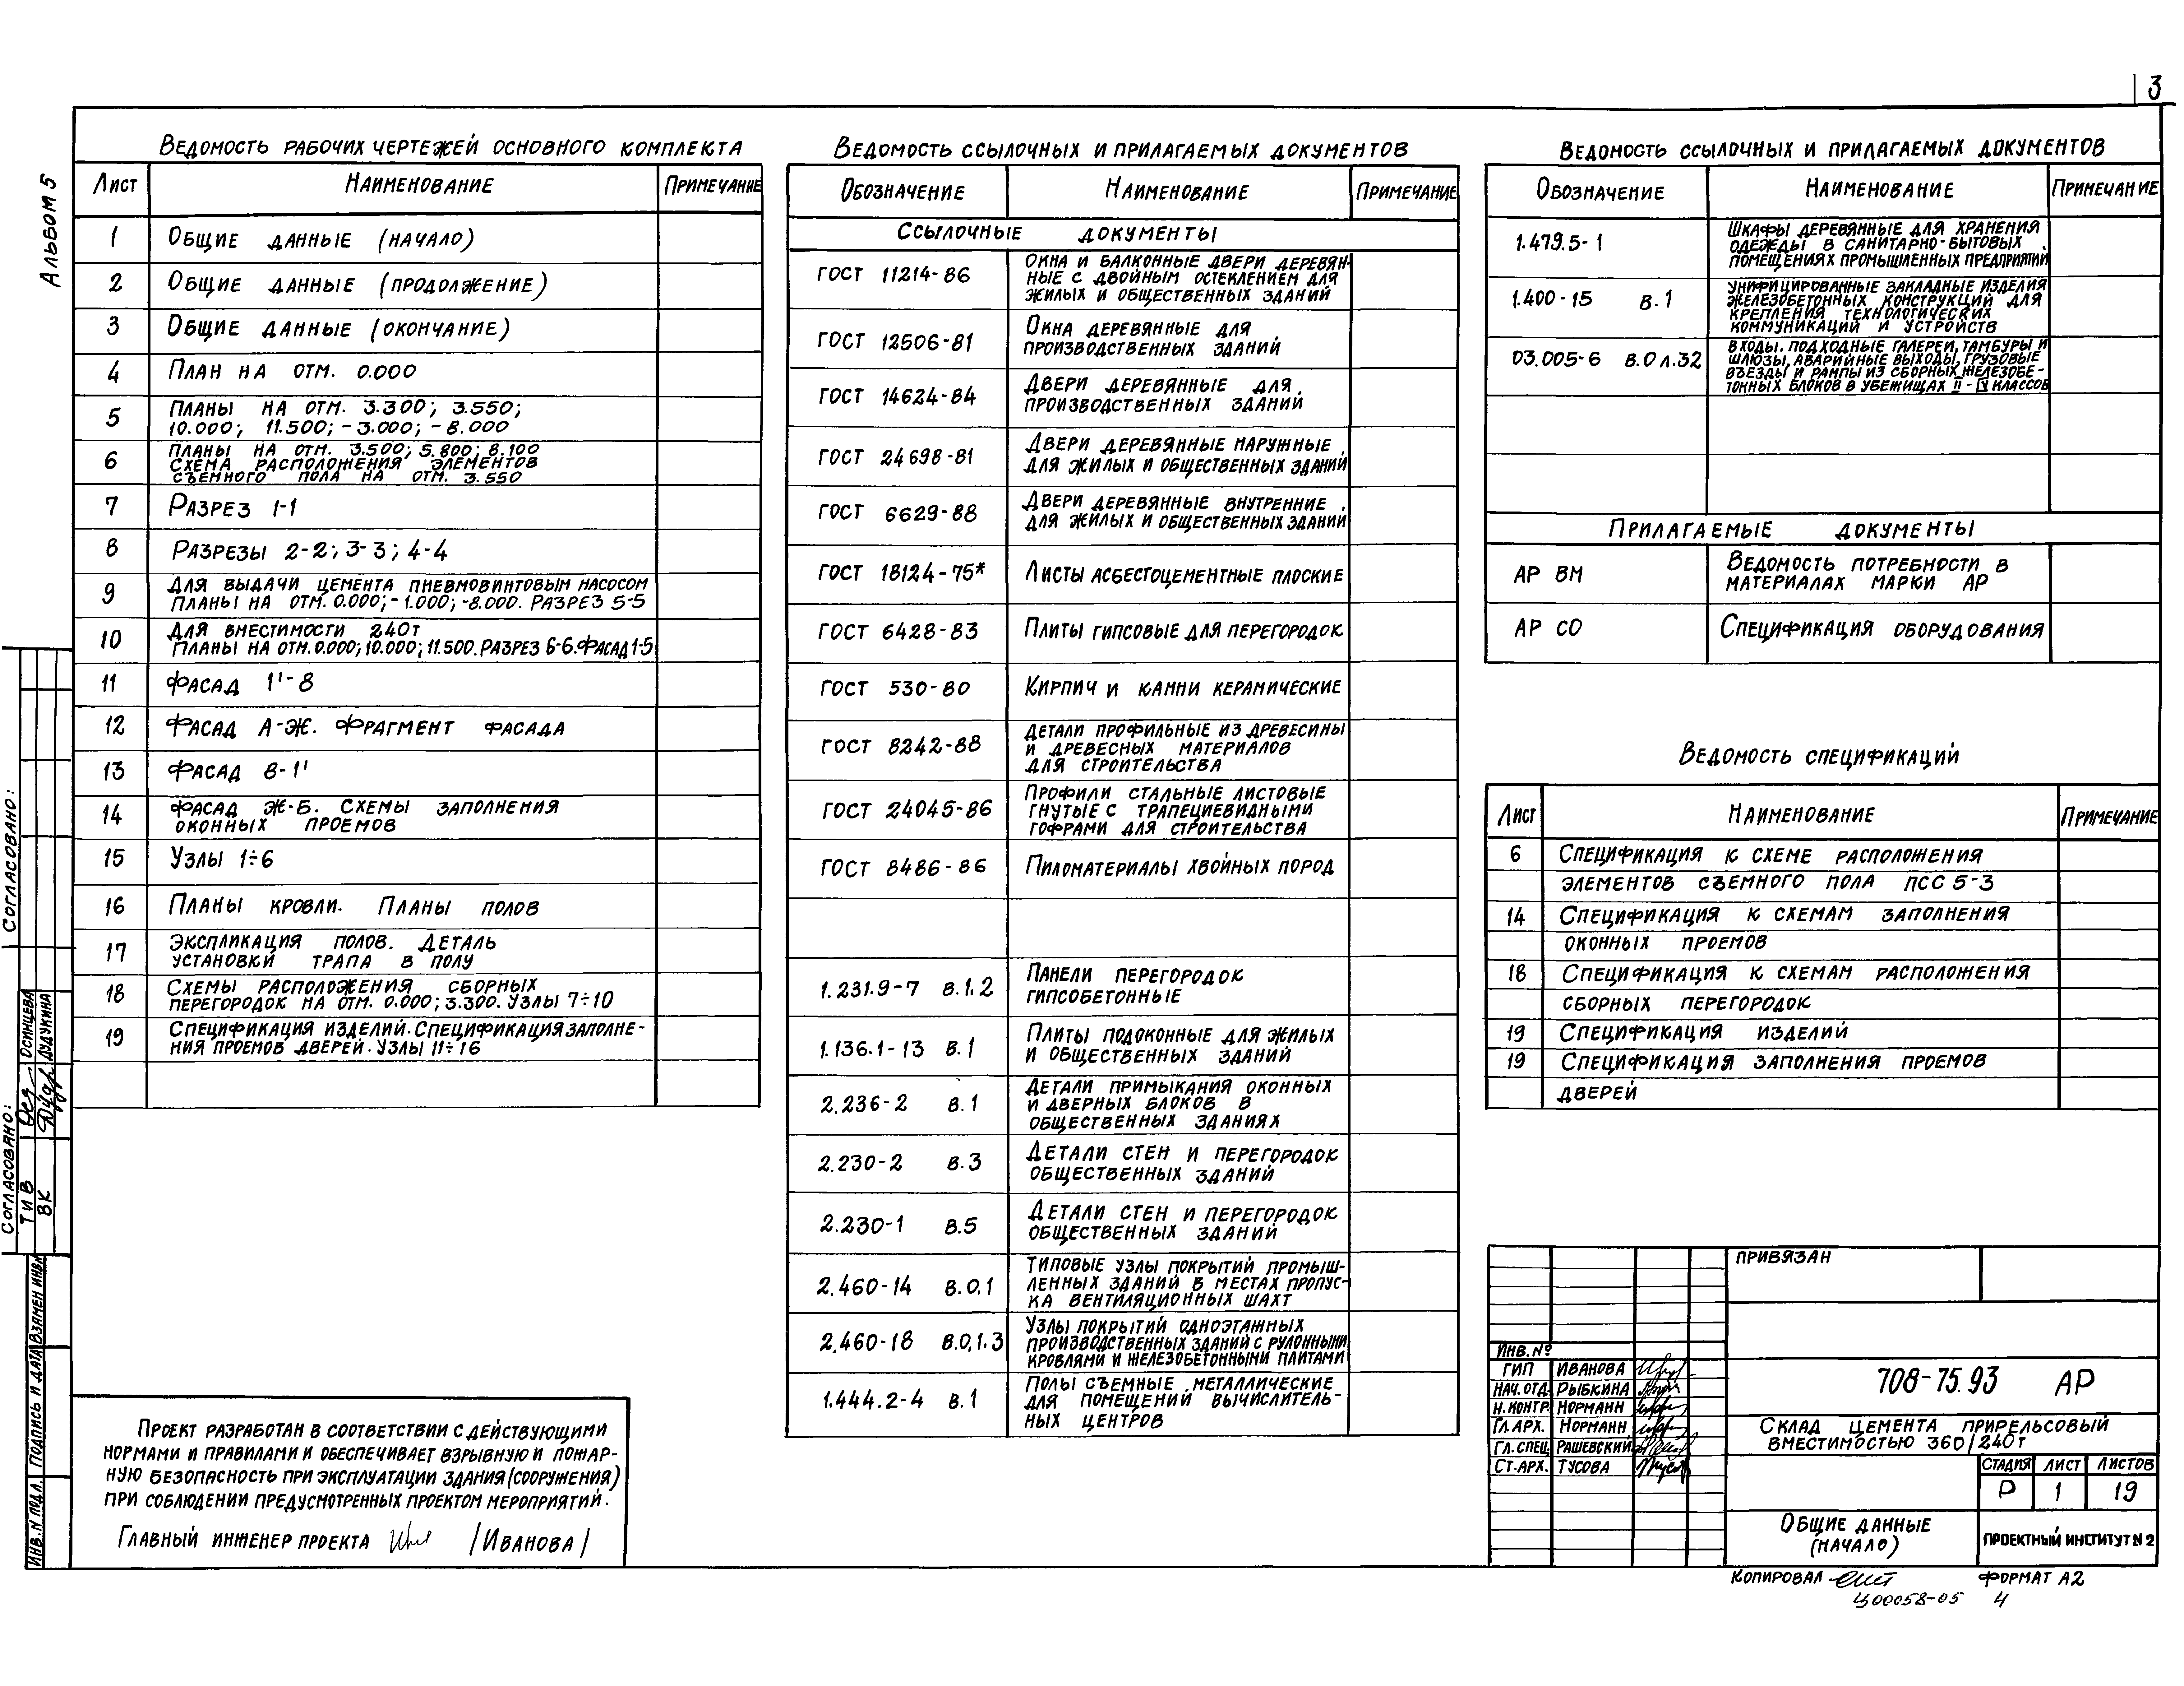 3
Альбом 5
Ведомость рабочих чертежей основного комплекта
Лист Наименование Примечание
1 Общие данные (начало)
2 Общие данные (продолжение)
3 Общие данные (окончание)
4 План на отм. 0.000
5 Планы на отм. 3.300; 3.550;
10.000; 11.500; -3.000; -8.000
6 Планы на отм. 3.500; 5.800; 8.100
Схема расположения элементов
съемного пола на отм. 3.550
7 Разрез 1-1
8 Разрезы 2-2; 3-3; 4-4
9 Для выдачи цемента пневмовинтовым насосом
Планы на отм. 0.000; -1.000; -8.000. Разрез 5-5
10 Для вместимости 240т
Планы на отм. 0.000; 10.000; 11.500. Разрез 6-6. Фасад 1-5
11 Фасад 1'-8
12 Фасад А-Ж. Фрагмент фасада
13 Фасад 8-1'
14 Фасад Ж-Б. Схемы заполнения
оконных проемов
15 Узлы 1÷6
16 Планы кровли. Планы полов
17 Экспликация полов. Деталь
установки трапа в полу
18 Схемы расположения сборных
перегородок на отм. 0.000; 3.300. Узлы 7÷10
19 Спецификация изделий. Спецификация заполне-
ния проемов дверей. Узлы 11÷16
Проект разработан в соответствии с действующими
нормами и правилами и обеспечивает взрывную и пожар-
ную безопасность при эксплуатации здания (сооружения)
при соблюдении предусмотренных проектом мероприятий.
Главный инженер проекта /Иванова/
Ведомость ссылочных и прилагаемых документов
Обозначение Наименование Примечание
Ссылочные документы
ГОСТ 11214-86 Окна и балконные двери деревян-
ные с двойным остеклением для
жилых и общественных зданий
ГОСТ 12506-81 Окна деревянные для
производственных зданий
ГОСТ 14624-84 Двери деревянные для
производственных зданий
ГОСТ 24698-81 Двери деревянные наружные
для жилых и общественных зданий
ГОСТ 6629-88 Двери деревянные внутренние
для жилых и общественных зданий
ГОСТ 18124-75* Листы асбестоцементные плоские
ГОСТ 6428-83 Плиты гипсовые для перегородок
ГОСТ 530-80 Кирпич и камни керамические
ГОСТ 8242-88 Детали профильные из древесины
и древесных материалов
для строительства
ГОСТ 24045-86 Профили стальные листовые
гнутые с трапециевидными
гофрами для строительства
ГОСТ 8486-86 Пиломатериалы хвойных пород
1.231.9-7 в.1,2 Панели перегородок
гипсобетонные
1.136.1-13 в.1 Плиты подоконные для жилых
и общественных зданий
2.236-2 в.1 Детали примыкания оконных
и дверных блоков в
общественных зданиях
2.230-2 в.3 Детали стен и перегородок
общественных зданий
2.230-1 в.5 Детали стен и перегородок
общественных зданий
2.460-14 в.0,1 Типовые узлы покрытий промыш-
ленных зданий в местах пропус-
ка вентиляционных шахт
2.460-18 в.0,1.3 Узлы покрытий одноэтажных
производственных зданий с рулонными
кровлями и железобетонными плитами
1.444.2-4 в.1 Полы съемные металлические
для помещений вычислитель-
ных центров
Ведомость ссылочных и прилагаемых документов
Обозначение Наименование Примечание
1.479.5-1 Шкафы деревянные для хранения
одежды в санитарно-бытовых
помещениях промышленных предприятий
1.400-15 в.1 Унифицированные закладные изделия
железобетонных конструкций для
крепления технологических
коммуникаций и устройств
03.005-6 в.0 л.32 Входы, подходные галереи, тамбуры и
шлюзы, аварийные выходы, грузовые
въезды и рампы из сборных железобе-
тонных блоков в убежищах II-IV классов
Прилагаемые документы
АР ВМ Ведомость потребности в
материалах марки АР
АР СО Спецификация оборудования
Ведомость спецификаций
Лист Наименование Примечание
6 Спецификация к схеме расположения
элементов съемного пола ПСС 5-3
14 Спецификация к схемам заполнения
оконных проемов
18 Спецификация к схемам расположения
сборных перегородок
19 Спецификация изделий
19 Спецификация заполнения проемов
дверей
Привязан
Инв. №
ГИП Иванова
Нач. отд. Рыбкина
Н.контр. Норманн
Гл.арх. Норманн
Гл.спец. Рашевский
Ст.арх. Тусова
708-75.93 АР
Склад цемента прирельсовый
вместимостью 360/240т
Стадия Лист Листов
Р 1 19
Общие данные
(начало)
Проектный институт N 2
Копировал Формат А2
Ц00058-05 4
Согласовано:
Согласовано:
ТиВ Осинцева
ВК Дудукина
Взамен инв.
Подпись и дата
Инв. N подл.